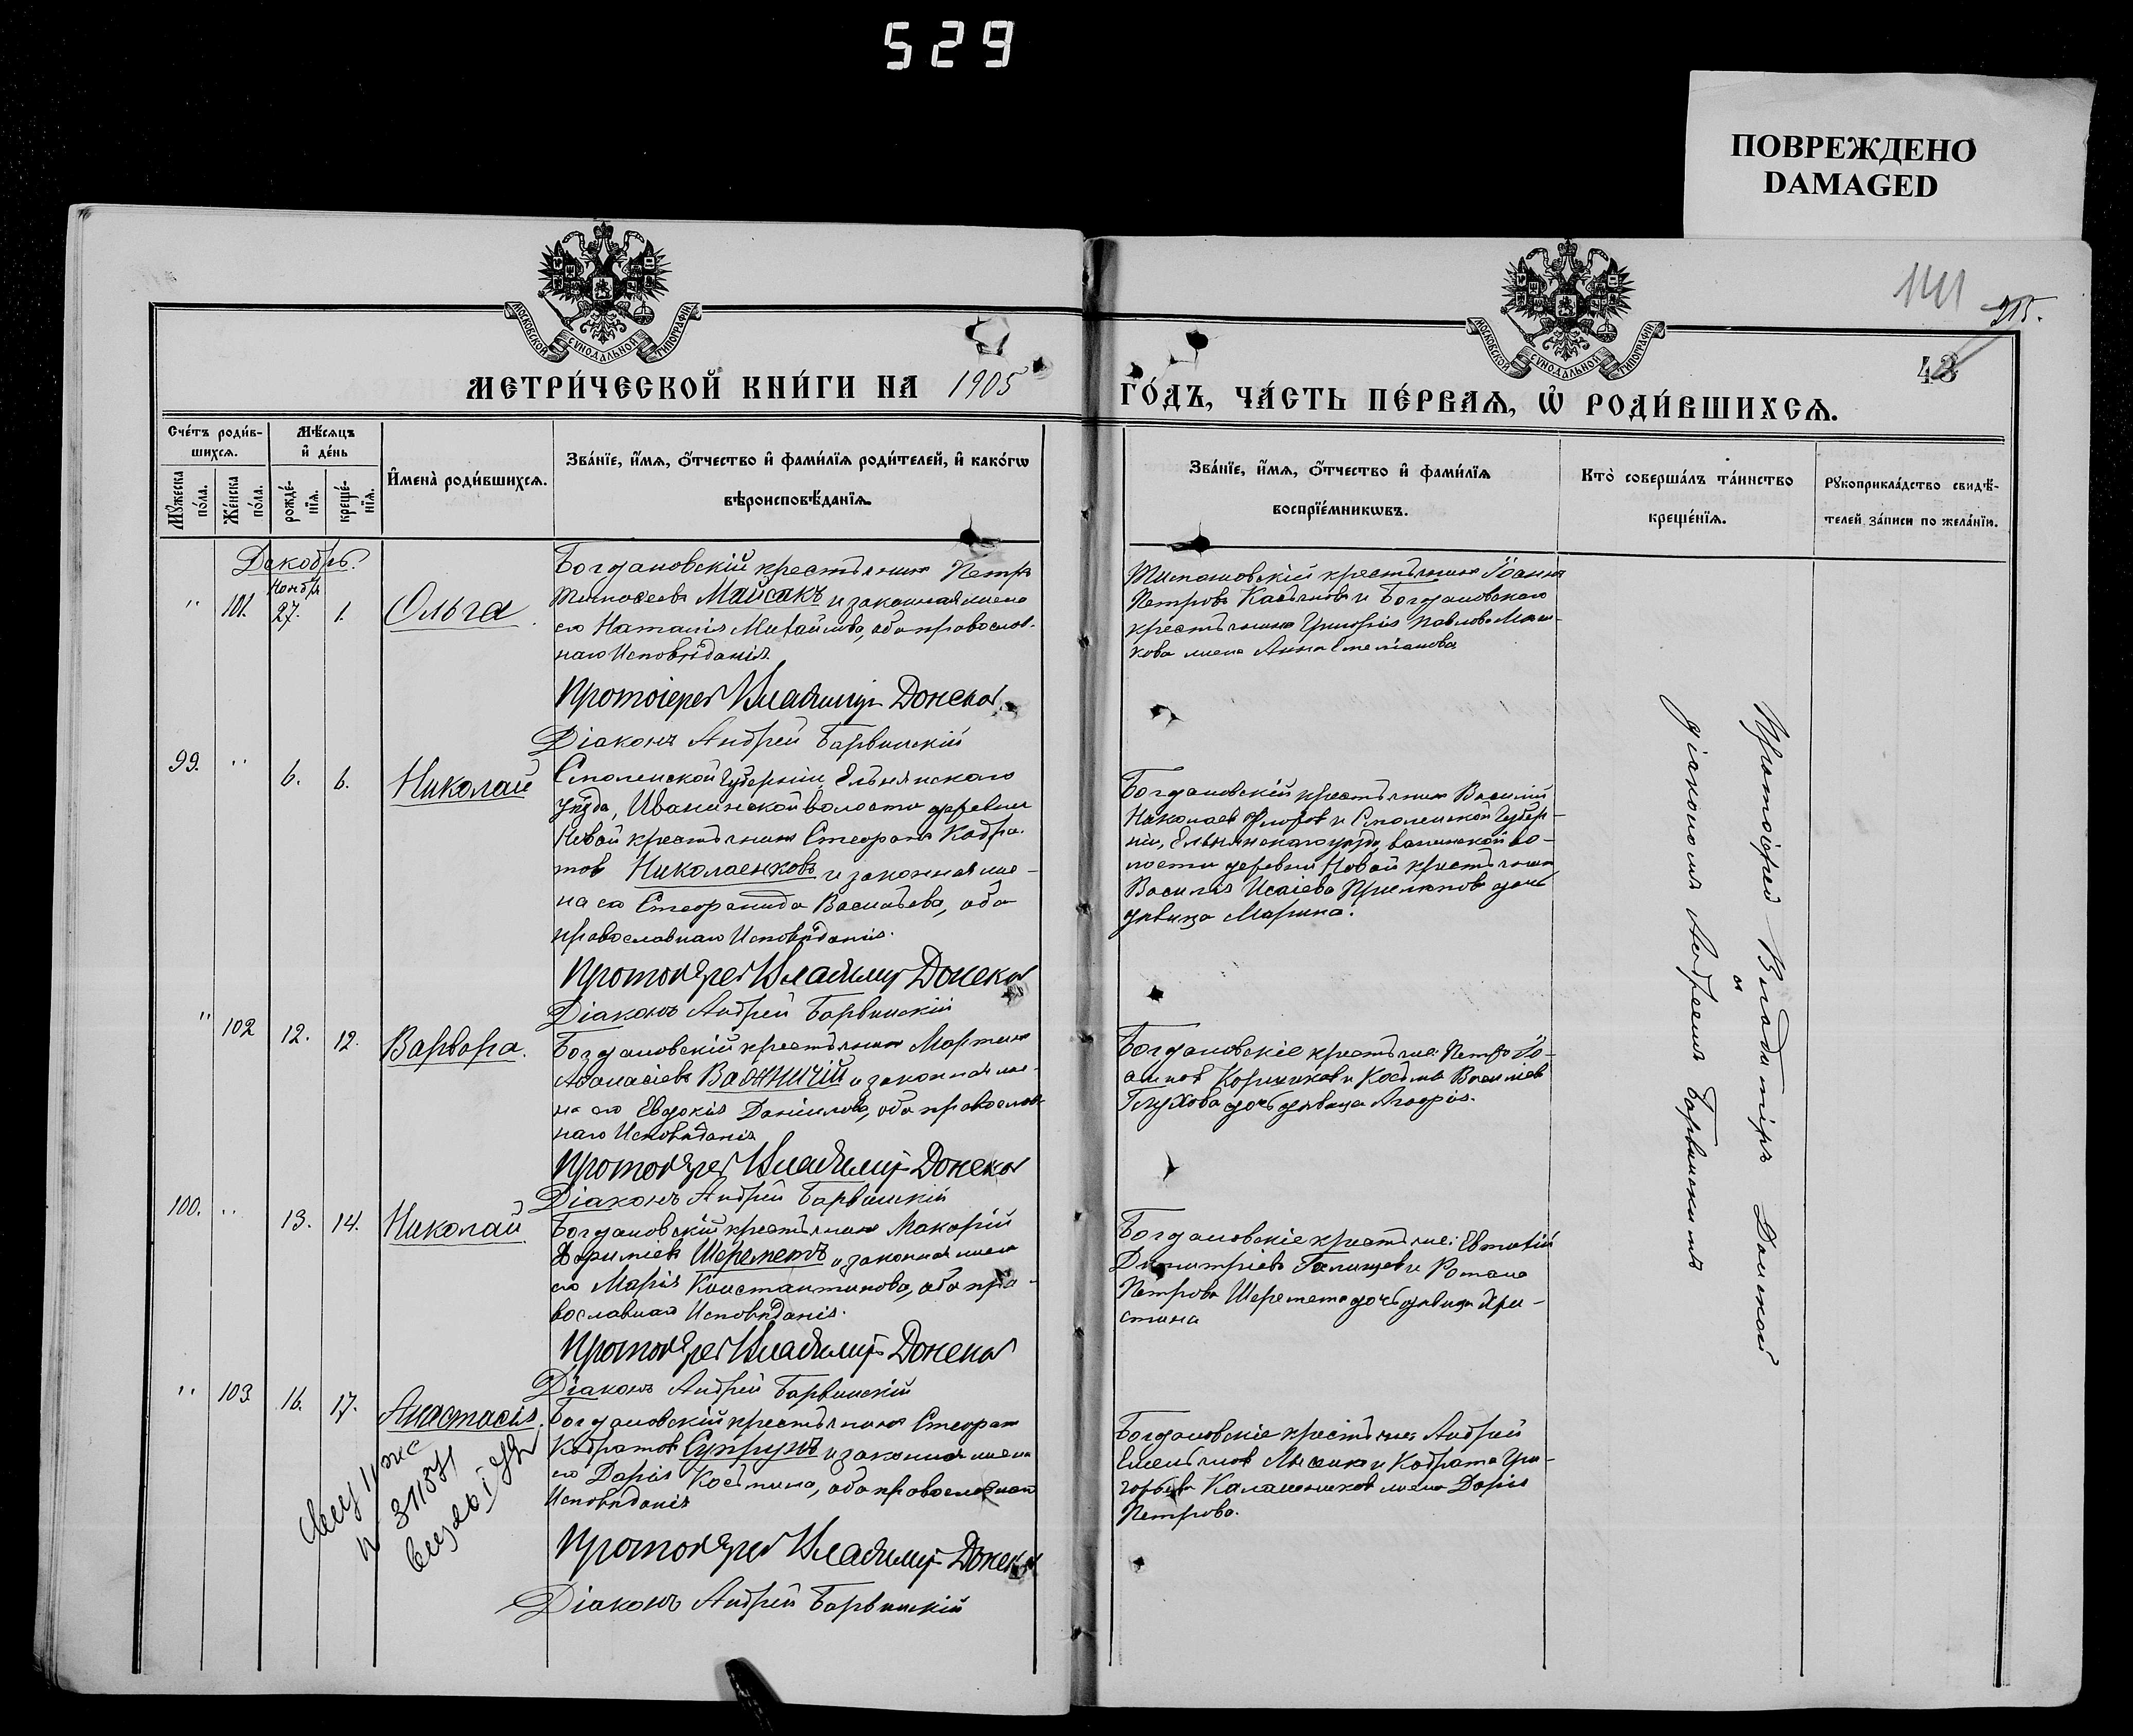 529
ПОВРЕЖДЕНО
DAMAGED
МОСКОВСКОЙ СѴНОДАЛЬНОЙ ТИПОГРАФІИ
МОСКОВСКОЙ СѴНОДАЛЬНОЙ ТИПОГРАФІИ
141
315.
48
МЕТРИ́ЧЕСКОЙ КНИ́ГИ НА 1905
ГО́ДЪ, ЧА́СТЬ ПЕ́РВАѦ, Ѡ҆ РОДИ́ВШИХСѦ.
Сче́тъ роди́в-
шихсѧ.
Мѣ́сѧцъ
и҆ де́нь
Мꙋ́жеска
по́ла.
Же́нска
по́ла.
рожде́-
нїѧ.
креще́-
нїѧ.
И҆мена̀ роди́вшихсѧ.
Зва́нїе, и҆́мѧ, ѻ҆́тчество и҆ фами́лїѧ роди́телей, и҆ како́гѡ
вѣроисповѣ́данїѧ.
Зва́нїе, и҆́мѧ, ѻ҆́тчество и҆ фами́лїѧ
воспрїе́мникѡвъ.
Кто̀ соверша́лъ та́инство
креще́нїѧ.
Рꙋкоприкла́дство свидѣ́-
телей за́писи по жела́нїю.
Декабрь.
Ноября
" 101. 27. 1. Ольга
Богдановскій крестьянинъ Петръ
Тимофеевъ Майсакъ и законная жена
его Наталія Михайлова, оба православ-
наго Исповѣданія.
Протоіерей Владиміръ Донской
Діаконъ Андрей Барвинскій
крестьянинъ Іоаннъ
Петровъ Касьяновъ и Богдановскаго
крестьянина Григорія Павлова
кова жена Анна Стефанова
99. " 6. 6. Николай
Смоленской Губерніи, Ельнинскаго
уѣзда, Иванинской волости деревни
Новой крестьянинъ Стефанъ Кодра-
товъ Николаенковъ и законная же-
на его Стефанида Васильева, оба
православнаго Исповѣданія.
Протоіерей Владиміръ Донской
Діаконъ Андрей Барвинскій
Богдановскій крестьянинъ Василій
Николаевъ Фроловъ и Смоленской Губер-
ніи, Ельнинскаго уѣзда, Иванинской во-
лости деревни Новой крестьянина
Василія Исаіева дочь
дѣвица Марина.
" 102 12. 12. Варвара.
Богдановскій крестьянинъ Мартинъ
Афанасіевъ Важничій и законная же-
на его Евдокія Даніилова, оба православ-
наго Исповѣданія
Протоіерей Владиміръ Донской
Діаконъ Андрей Барвинскій
Богдановскіе крестьяне: Петръ Іо-
анновъ Корниковъ и Косьмы Васильева
Глухова дочь дѣвица Агафія.
100. " 13. 14. Николай
Богдановскій крестьянинъ Макарій
Шереметъ и законная жена
его Марія Константинова, оба пра-
вославнаго Исповѣданія.
Протоіерей Владиміръ Донской
Діаконъ Андрей Барвинскій
Богдановскіе крестьяне: Евтихій
Димитріевъ Галищевъ и Романа
Петрова Шеремета дочь дѣвица Хри-
стина
" 103 16. 17. Анастасія.
Богдановскій крестьянинъ Стефанъ
Кодратовъ Супрунъ и законная жена
его Дарія Косьмина, оба православнаго
Исповѣданія
Протоіерей Владиміръ Донской
Діаконъ Андрей Барвинскій
Богдановскіе крестьяне Андрей
Емельяновъ Лысенко и Кодрата Гри-
горьева Калашникова жена Дарія
Петрова.
Протоіерей Владиміръ Донской
и
діакономъ Андреемъ Барвинскимъ